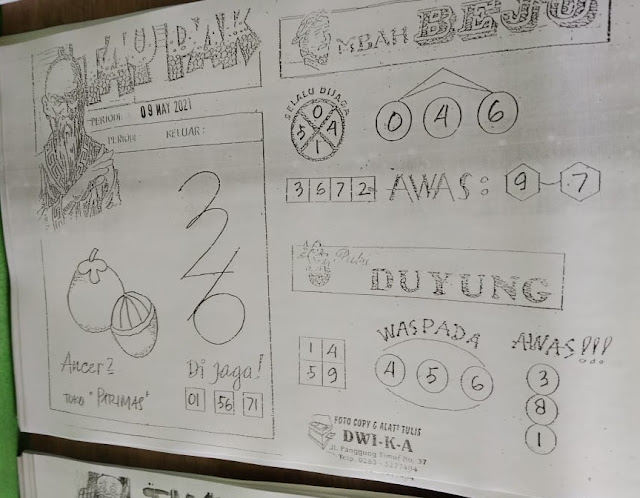 PERIODE: 09 MAY 2021
PERIODE KELUAR:
3
2
4
6
Ancer2
TOKO "PARIMAS"
Di jaga!
01 56 71
MBAH BEJO
SELALU DIJAGA
0
5 4
1
0 4 6
3 6 7 2
AWAS: 9 7
DUYUNG
1 4
5 9
WASPADA
4 5 6
AWAS!!!
3
8
1
FOTO COPY & ALAT² TULIS
DWI-K-A
Jl. Panggung Timur No. 37